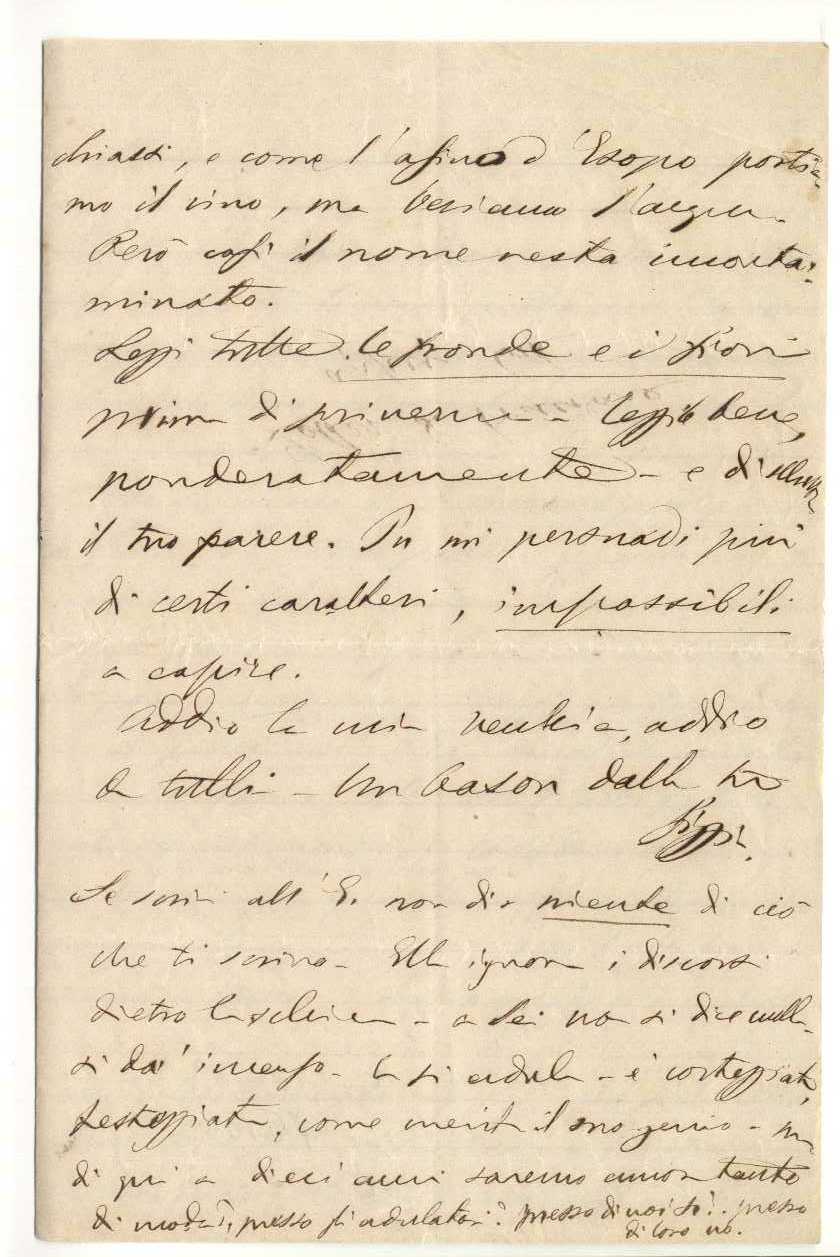 chiassi, e come l'asino d'Esopo portia-
mo il vino, ma beviamo l'acqua.
Però così il nome resta inconta-
minato.
Leggi tutte le fronde e i fiori
prima di primavera - leggile bene,
ponderatamente - e di
il tuo parere. Tu mi persuadi più
di certi caratteri, impossibili
a capire.
Addio la mia vecchia, addio
a tutti - Un bason dalla tua
Pippi.
Se scrivi all'E. non dir niente di ciò
che ti scrivo - Ella ignora i discorsi
dietro la schiena - a lei non si dice nulla -
si dà l'incenso - la si adula - è corteggiata,
festeggiata, come merita il suo genio - ma
di qui a dieci anni saremo ancora tanto
di moda?, presso gli adulatori? presso di noi sì! - presso
di loro no.